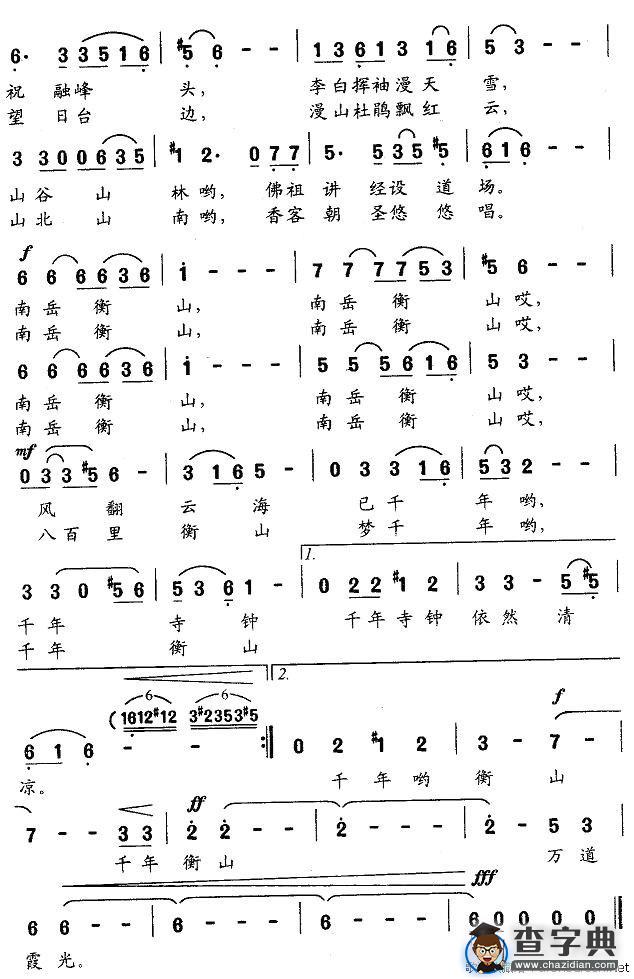 6· 3 3 5 1 6 #5 6 - - 1 3 6 1 3 1 6 5 3 - -
祝 融峰 头, 李白挥袖漫天 雪,
望 日台 边, 漫山杜鹃飘红 云,
3 3 0 0 6 3 5 #1 2· 0 7 7 5· 5 3 5 #5 6 1 6 - -
山谷 山 林哟, 佛祖 讲 经设 道 场。
山北 山 南哟, 香客 朝 圣悠 悠 唱。
f
6 6 6 6 3 6 i - - - 7 7 7 7 5 3 #5 6 - -
南岳 衡 山, 南岳 衡 山哎,
南岳 衡 山, 南岳 衡 山哎,
6 6 6 6 3 6 i - - - 5 5 5 6 1 6 5 3 - -
南岳 衡 山, 南岳 衡 山哎,
南岳 衡 山, 南岳 衡 山哎,
mf
0 3 3 #5 6 - 3 1 6 5 - 0 3 3 1 6 5 3 2 -
风 翻 云 海 已 千 年 哟,
八百 里 衡 山 梦 千 年 哟,
1.
3 3 0 #5 6 5 3 6 1 - 0 2 2 #1 2 3 3 - 5 #5
千年 寺 钟 千年寺钟 依然 清
千年 衡 山
2.
6 6 f
(1612#12 3#2353#5
6 1 6 - - :‖ 0 2 #1 2 3 - 7 -
凉。 千年哟 衡 山
ff
7 - - 3 3 2 - - - 2 - - - 2 - 5 3
千年 衡山 万道
fff
6 6 - - 6 - - - 6 - - - 6 0 0 0
霞光。
查字典
www.chazidian.com